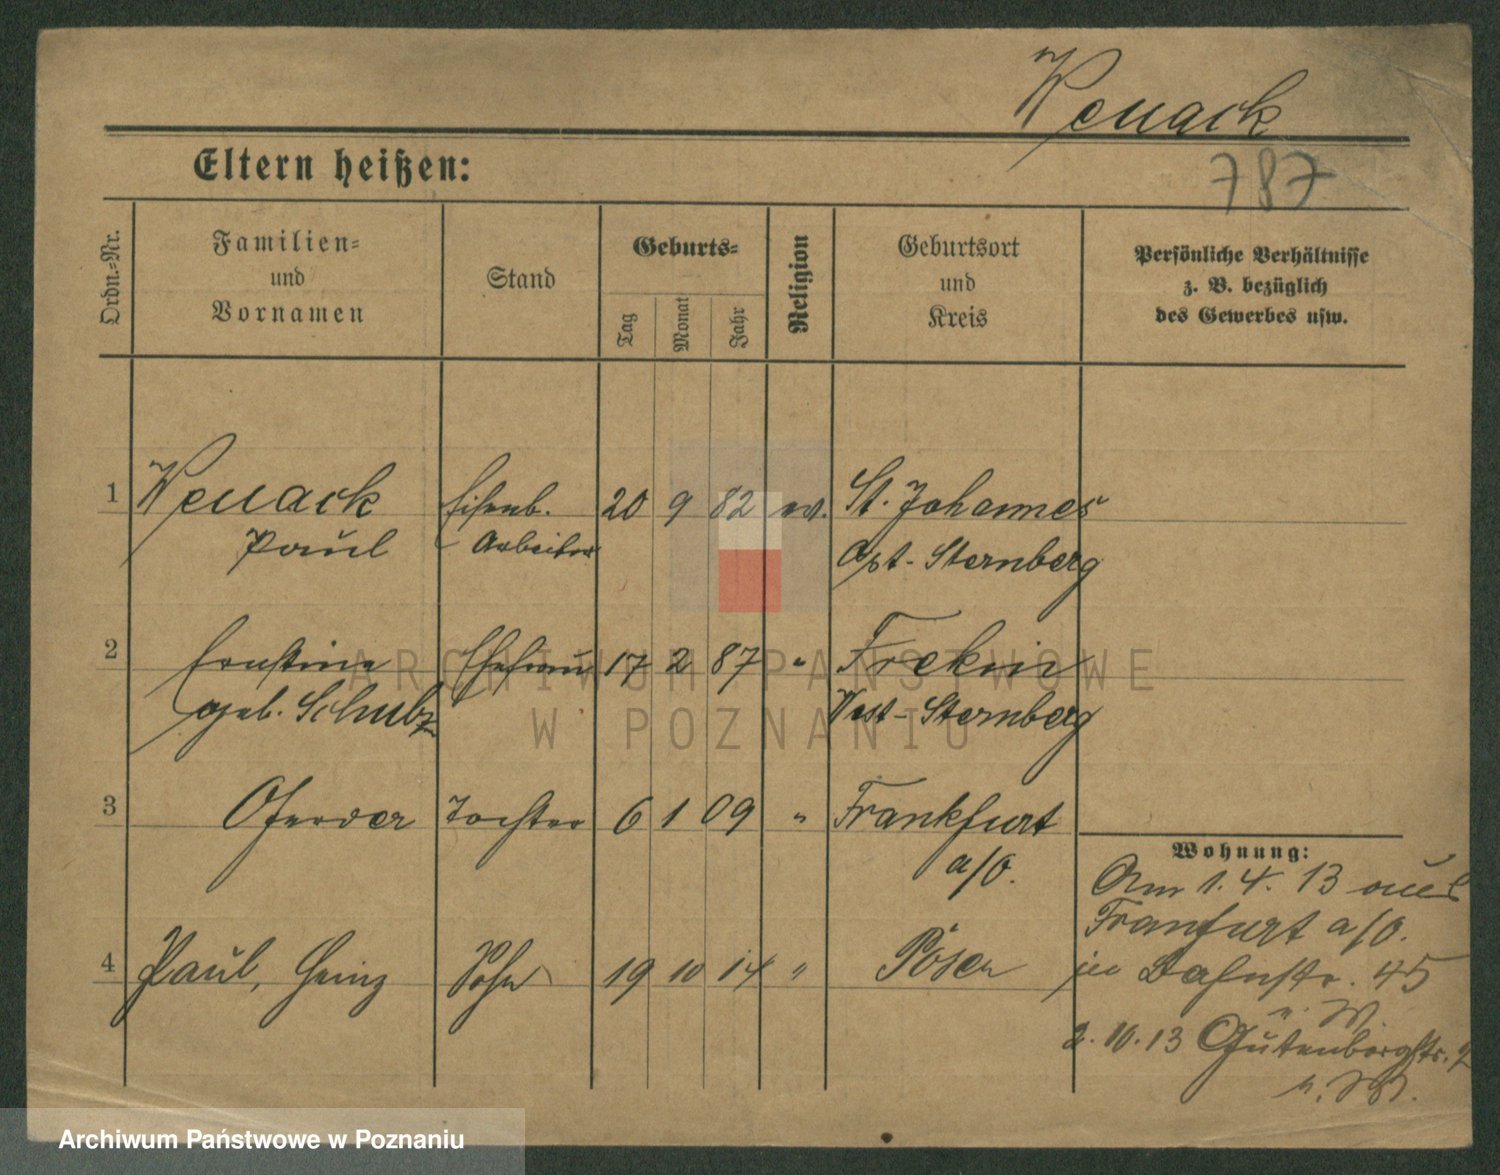 Wenack
Eltern heißen:
787
Ordn.-Nr.
Familien=
und
Vornamen
Stand
Geburts=
Tag
Monat
Jahr
Religion
Geburtsort
und
Kreis
Persönliche Verhältnisse
z. B. bezüglich
des Gewerbes usw.
1 Wenack Eisenb. 20 9 82 ev. St. Johannes
Paul Arbeiter Ost-Sternberg
2 Ernstine Ehefrau 17 2 87 "
geb. Schulz West-Sternberg
3 Tochter 6 1 09 " Frankfurt
a/O.
4 Paul, Heinz Sohn 19 10 14 " Posen
Wohnung:
Am 1. 4. 13 aus
Frankfurt a/O.
in Bahnstr. 45
n. W.
2. 10. 13 Gutenbergstr. 2
n. W.
ARCHIWUM PAŃSTWOWE
W POZNANIU
Archiwum Państwowe w Poznaniu